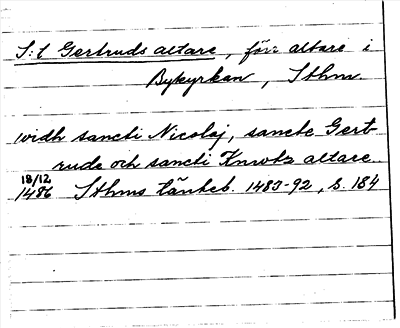 S:t Gertruds altare, förr altare i
Bykyrkan, Sthm.
widh sancti Nicolaj, sancte Gert-
rude och sancti Knwtz altare.
18/12
1486 Sthms tänkeb. 1483-92, s. 184